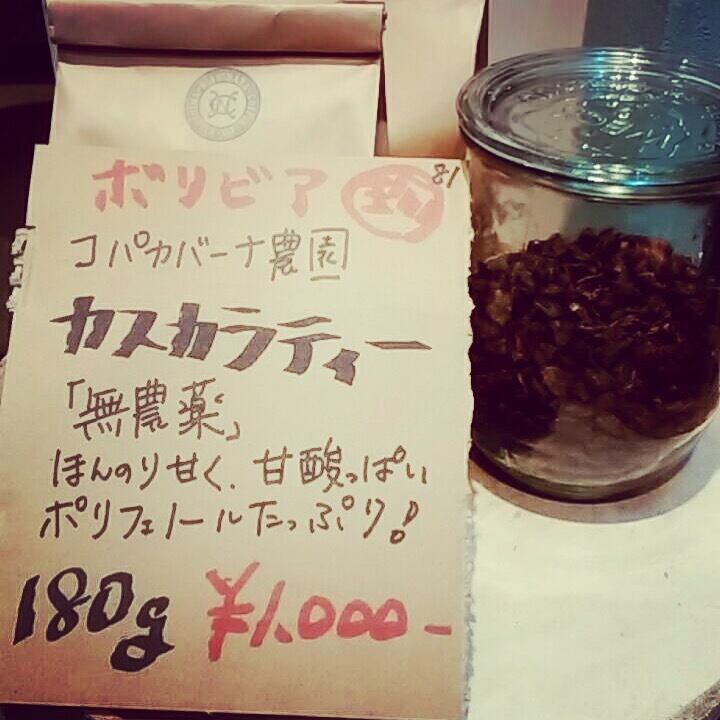 ボリビア
81
コパカバーナ農園
カスカラティー
「無農薬」
ほんのり甘く、甘酸っぱい
ポリフェノールたっぷり！
180g ¥1,000-